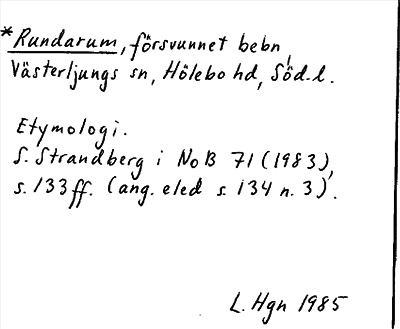 *Rundarum, försvunnet bebn,
Västerljungs sn, Hölebo hd, Söd.l.
Etymologi.
S. Strandberg i NoB 71 (1983),
s. 133 ff. (ang. eled s. 134 n. 3).
L. Hgn 1985